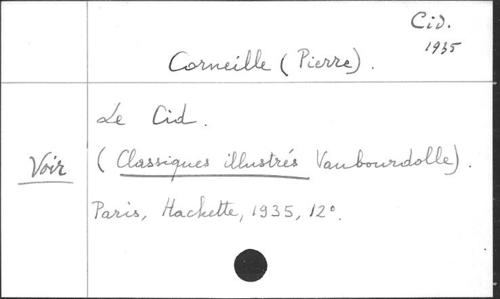 Cid.
1935
Corneille (Pierre).
Le Cid.
Voir
(Classiques illustrés Vaubourdolle).
Paris, Hachette, 1935, 12°.